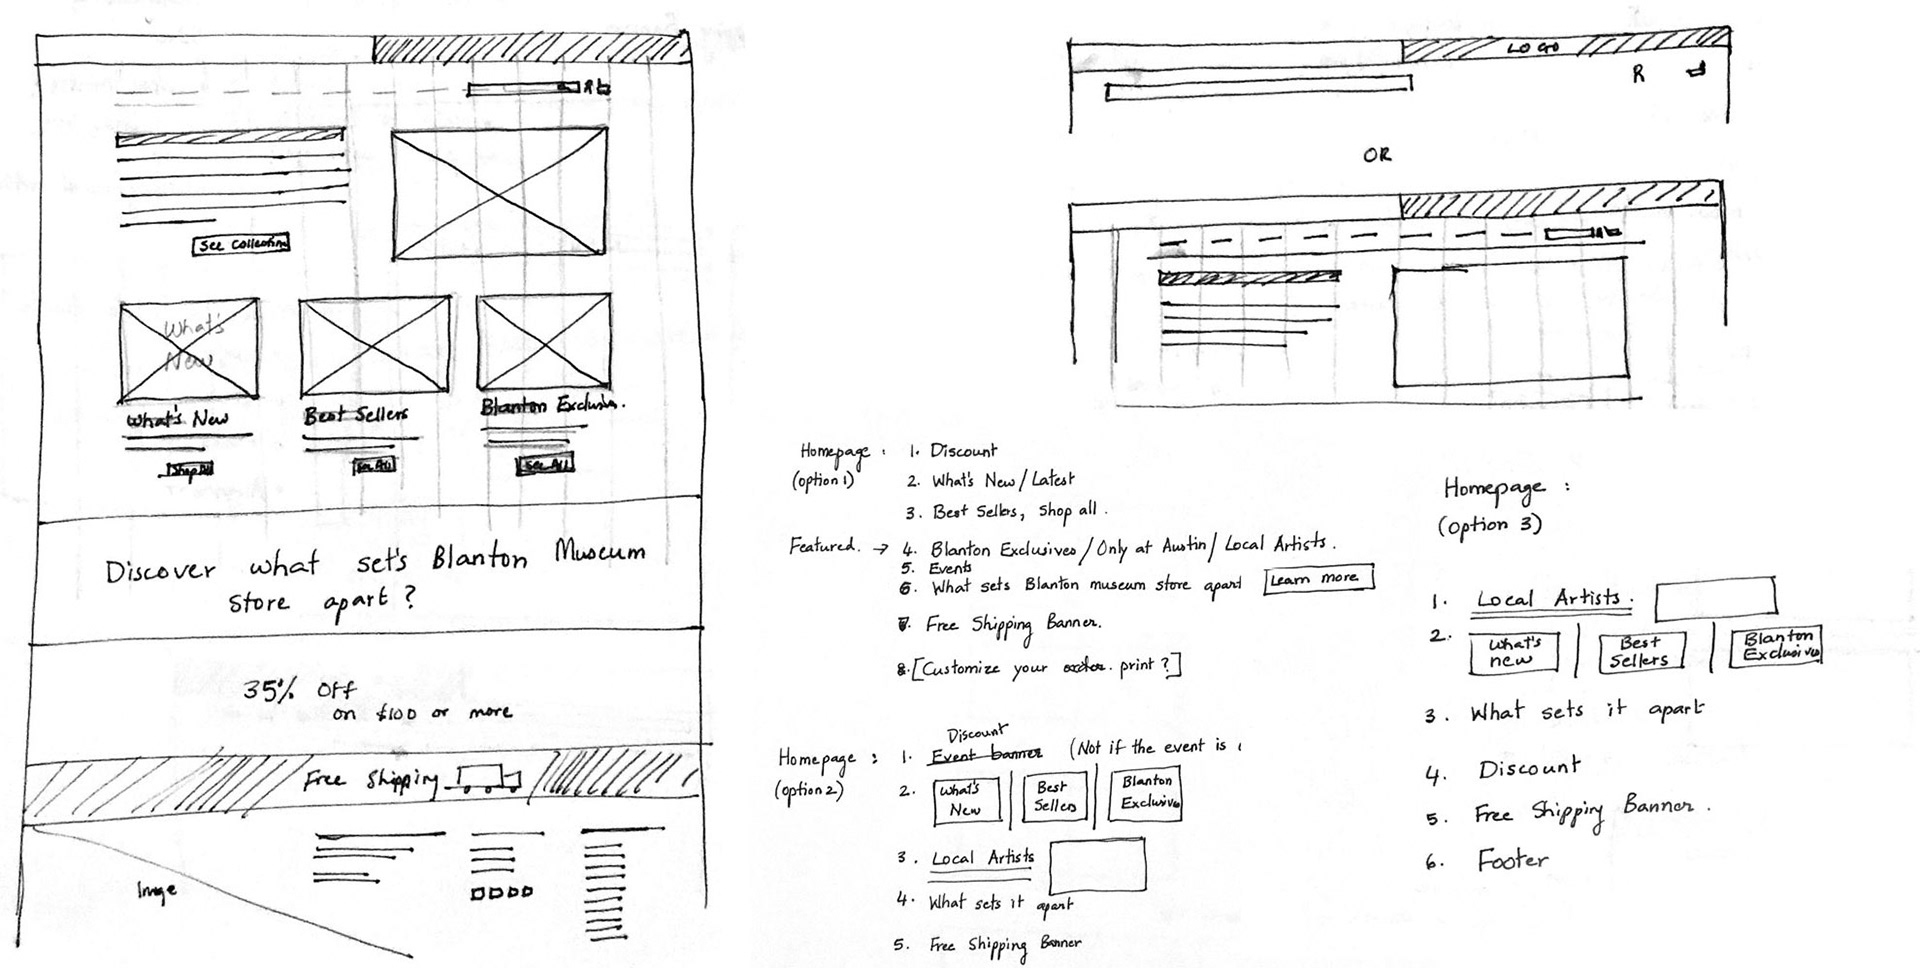 R
See Collection
What's
New
What's New
Shop All
Best Sellers
See All
Blanton Exclusiv.
See All
Discover what set's Blanton Museum
Store apart?
35% Off
on $100 or more
Free Shipping
Image
LOGO
R
OR
Homepage :
(option 1)
1. Discount
2. What's New / Latest
3. Best Sellers, Shop all.
Featured. → 4. Blanton Exclusives / Only at Austin / Local Artists.
5. Events
6. What sets Blanton museum store apart Learn more
7. Free Shipping Banner.
8. [Customize your print?]
Homepage :
(option 2)
Discount
1. Event banner (Not if the event is
2. What's New | Best Sellers | Blanton Exclusive
3. Local Artists
4. What sets it apart
5. Free Shipping Banner
Homepage :
(option 3)
1. Local Artists.
2. What's new | Best Sellers | Blanton Exclusives
3. What sets it apart
4. Discount
5. Free Shipping Banner.
6. Footer